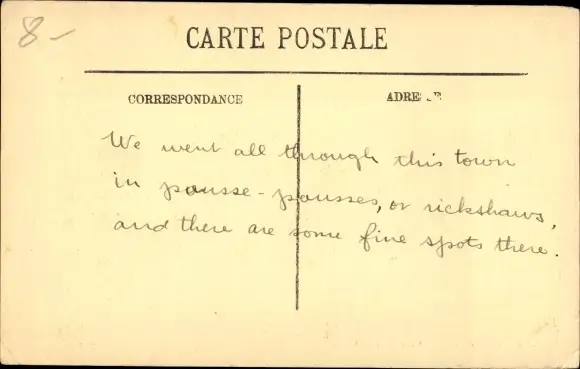 8-
CARTE POSTALE
CORRESPONDANCE
ADRESSE
We went all through this town
in pousse-pousses, or rickshaws,
and there are some fine spots there.